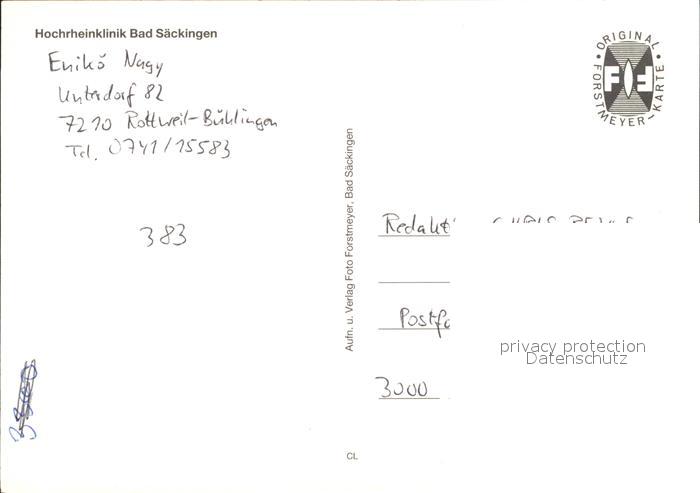 Hochrheinklinik Bad Säckingen
Enikő Nagy
Unterdorf 82
7210 Rottweil-Bühlingen
Tel. 0741/15583
383
Aufn. u. Verlag Foto Forstmeyer, Bad Säckingen
ORIGINAL
FORSTMEYER-KARTE
FF
Redakti
Postfa
3000
privacy protection
Datenschutz
CL